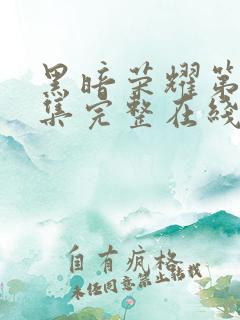 黑暗荣耀第
集完整在线
自有疯格
未经同意禁止转载